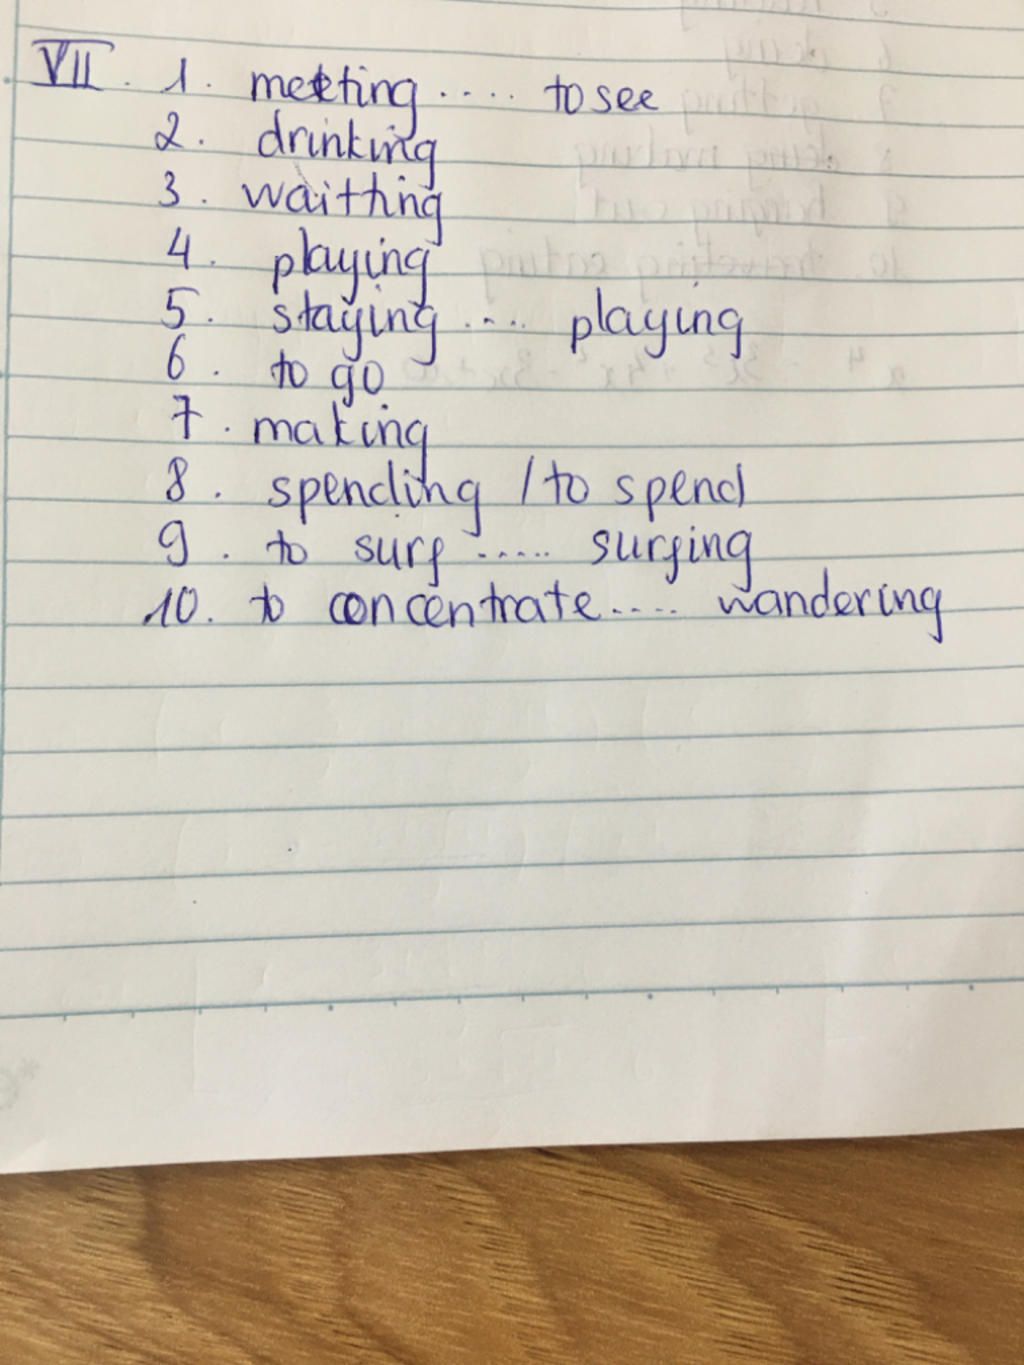 VII. 1. meeting .... to see
2. drinking
3. waithing
4. playing
5. staying .... playing
6. to go
7. making
8. spending / to spend
9. to surf ..... surfing
10. to concentrate .... wandering